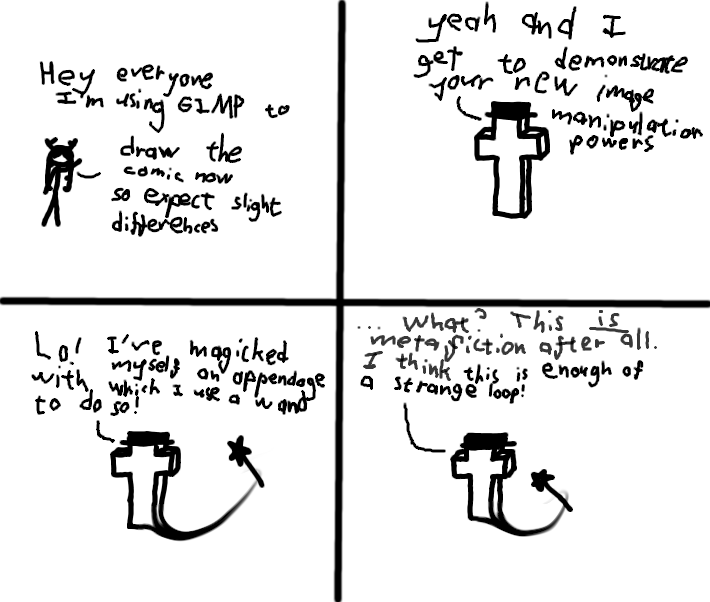 Hey everyone
I'm using GIMP to
draw the
comic now
so expect slight
differences
yeah and I
get to demonstrate
your new image
manipulation
powers
Lo! I've magicked
myself an appendage
with which I use a wand
to do so!
... What? This is
metafiction after all.
I think this is enough of
a strange loop!